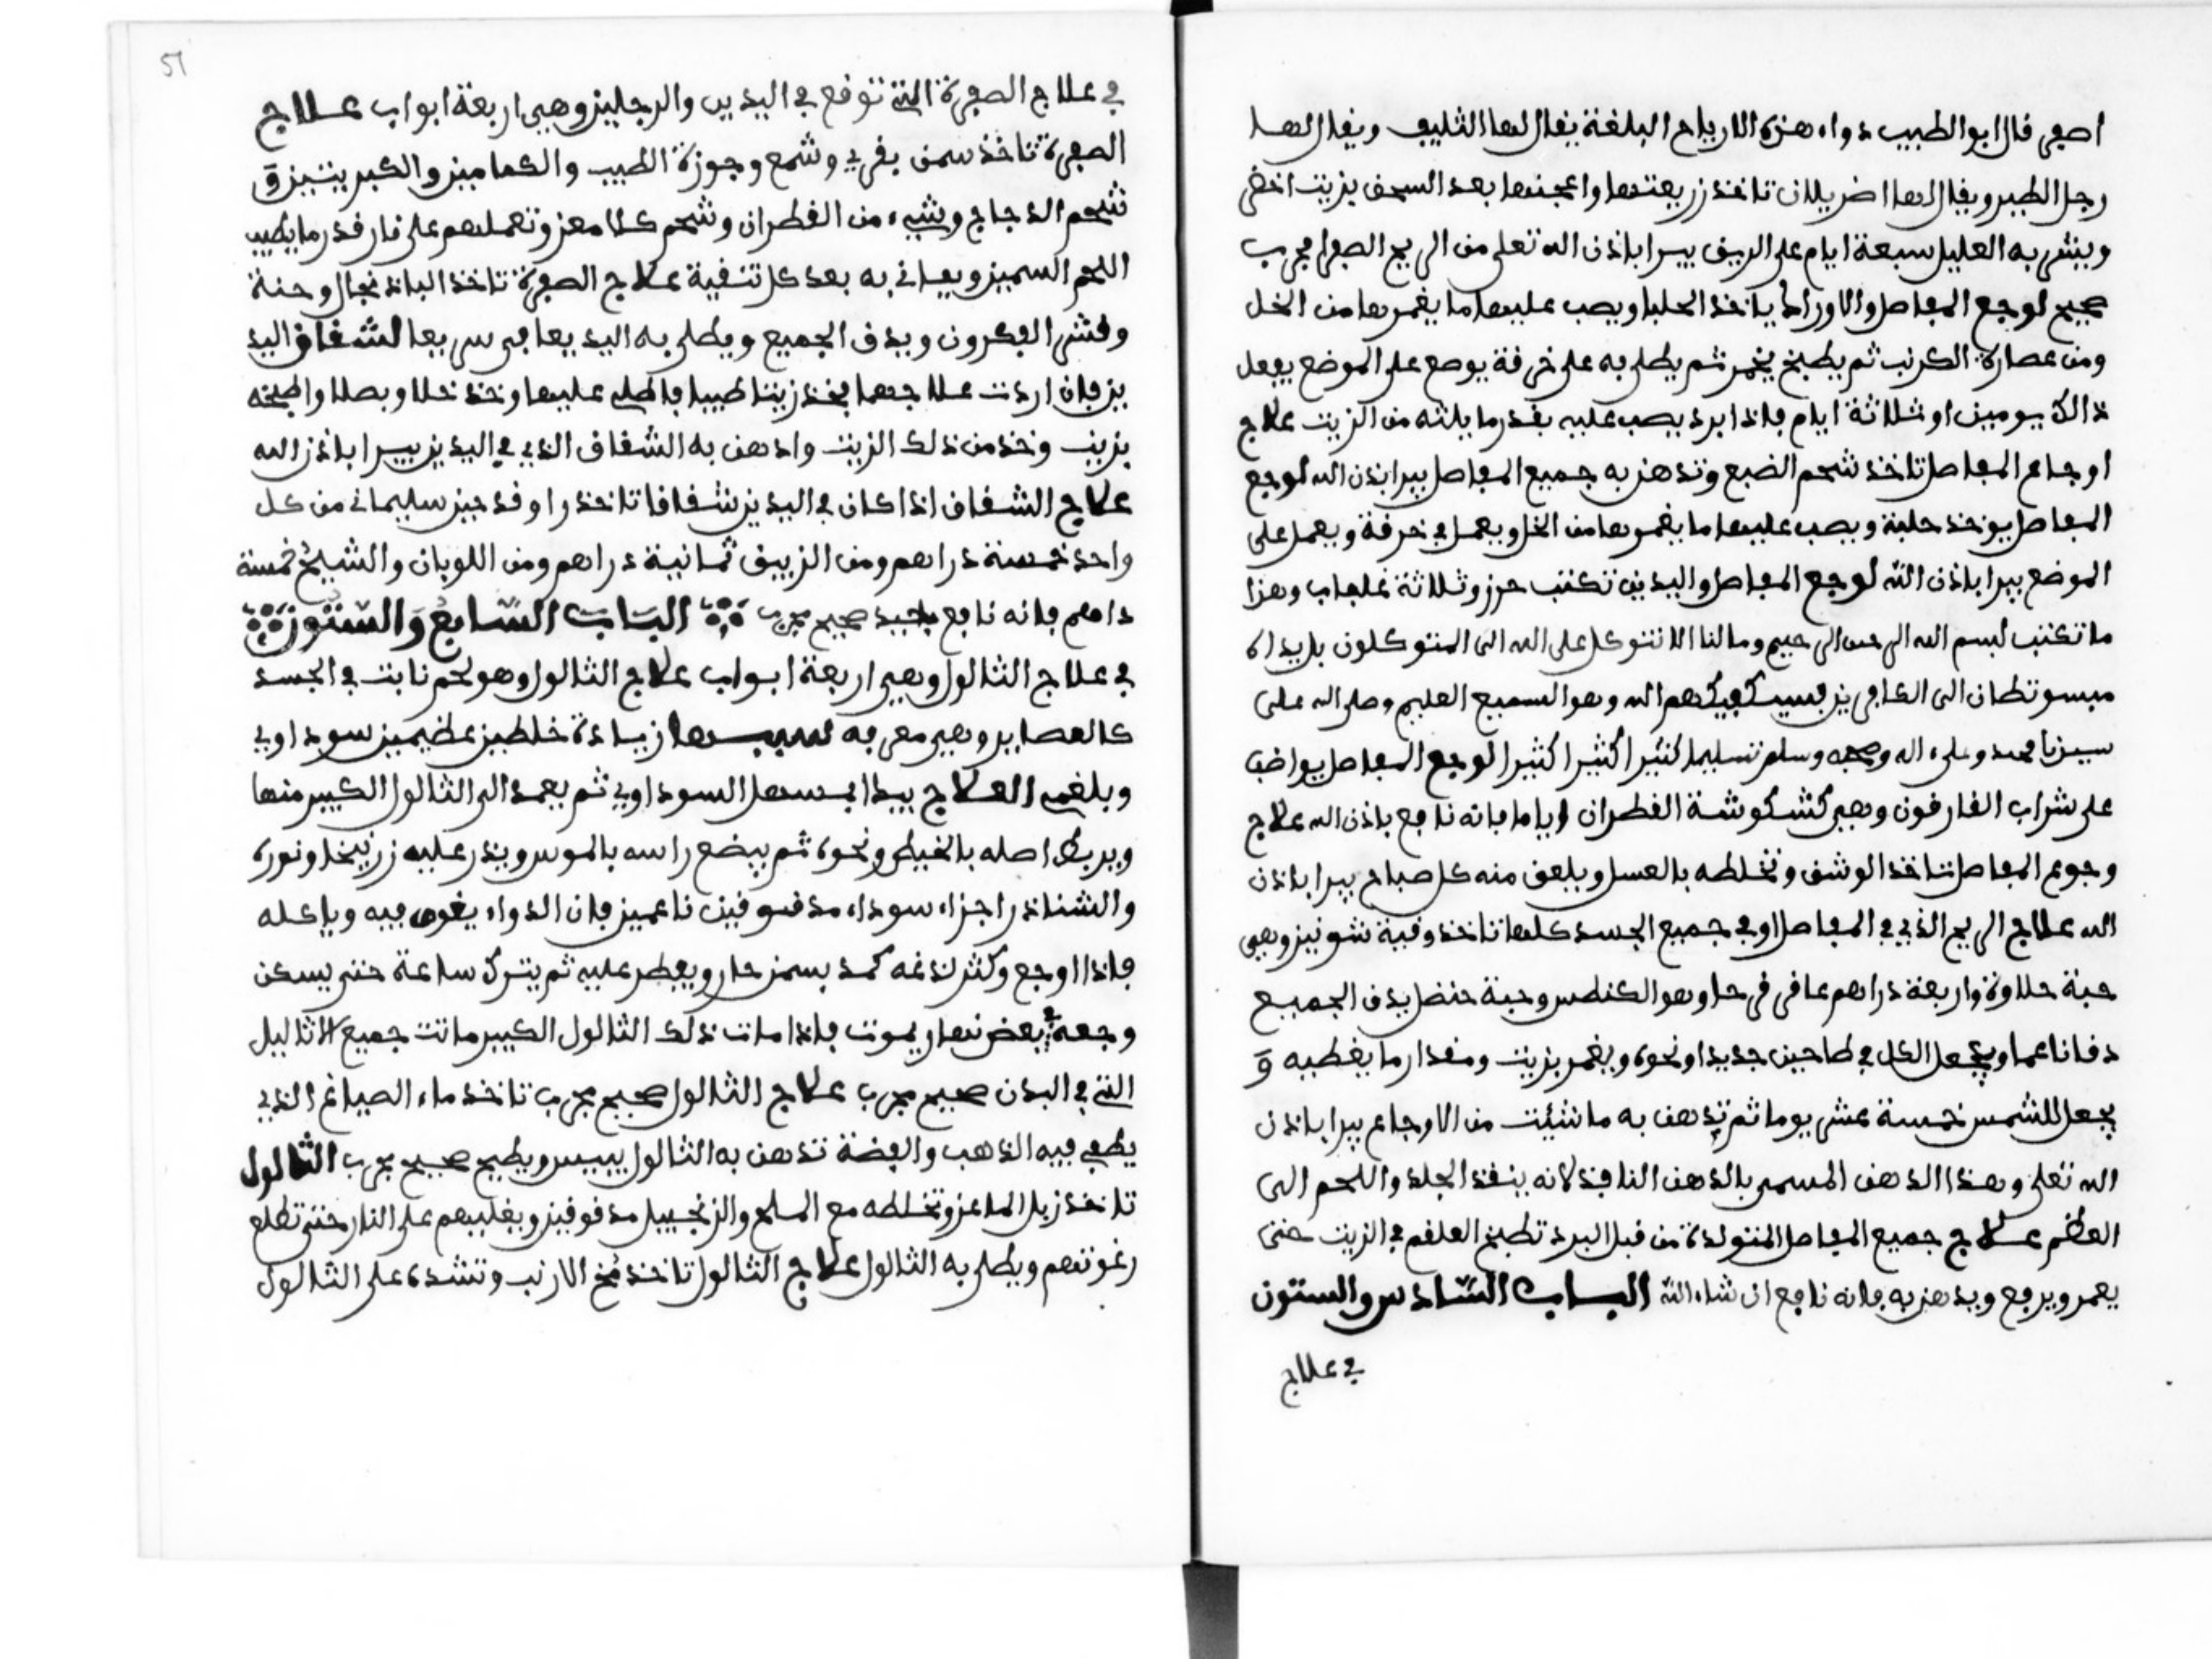 اصفر قال ابو الطبيب دواء هذه الارياح البلغة يقال لها الثليف ويقال لها
رجل الطير ويقال لها اضريلان تاخذ زريعتها واعجنها بعد السحق بزيت اخضر
وينشر به العليل سبعة ايام على الريق يبرا باذن الله تعلى من الريح الصفرا مجرب
صحيح لوجع المفاصل والاوراك ياخذ الحلبا ويصب عليها ما يغمرها من الخل
ومن عصارة الكرنب ثم يطبخ يخمر ثم يطلى به على خرقة يوضع على الموضع يفعل
ذالك يومين او ثلاثة ايام فاذا برد يصب عليه بقدر ما يلته من الزيت علاج
اوجاع المفاصل تاخذ شحم الضبع وتدهن به جميع المفاصل يبرا بذن الله لوجع
المفاصل يوخذ حلبة ويصب عليها ما يغمرها من الخل ويعمل في خرقة ويعمل على
الموضع يبرا باذن الله لوجع المفاصل واليدين تكتب حرز وثلاثة وهذا
ما تكتب لبسم الله الرحمن الرحيم وما لنا الا نتوكل على الله الى المتوكلون بل يداه
مبسوتطان الى الكافرين فسيكفيكهم الله وهو السميع العليم وصلى الله على
سيدنا محمد وعلى اله وصحبه وسلم تسليما كثيرا كثيرا كثيرا لوجع المفاصل يواضب
على شراب الفارفون وهي كشكوشة القطران اياما فانه نافع باذن الله علاج
وجوع المفاصل تاخذ الوشق وتخلطه بالعسل ويلعق منه كل صباح يبرا باذن
الله علاج الريح الذي في المفاصل او في جميع الجسد كلها تاخذ وقية شونيز وهي
حبة حلاوة واربعة دراهم عاقر قرحا وهو الكنطس وحبة حنضل يدق الجميع
دقا ناعما ويجعل الكل في طاجين جديد او نحوه ويغمر بزيت ومقدار ما يغطيه و
يجعل للشمس خمسة عشر يوما ثم تدهن به ما شئت من الاوجاع يبرا باذن
الله تعلى وهذا الدهن المسمى بالدهن النافذ لانه ينفذ الجلد واللحم الى
العظم علاج جميع المفاصل المتولدة من قبل البرد تطبخ العلقم في الزيت حتى
يحمر ويرفع ويدهن به فانه نافع ان شاء الله الباب السادس والستون
في علاج
51
في علاج الصفرة التي توقع في اليدين والرجلين وهي اربعة ابواب علاج
الصفرة تاخذ سمن بقري وشمع وجوزة الطيب والكمامين والكبريتين و
شحم الدجاج وشيء من القطران وشحم كلا معز وتعملهم على نار قدر ما يطيب
اللحم السمين ويعانى به بعد كل تنقية علاج الصفرة تاخذ الباذنجال وحنة
وقشر الفكرون ويدق الجميع ويطلى به اليد يعافى سريعا لشقاق اليد
ين فان اردت علاجها فخذ زيتا طيبا فاطلى عليها وخذ خلا وبصلا واطبخه
بزيت وخذ من ذلك الزيت وادهن به الشقاق الذي في اليدين يبرا باذن الله
علاج الشقاق اذا كان في اليدين شقاقا تاخذ سليماني من كل
واحد خمسة دراهم ومن الزيبق ثمانية دراهم ومن اللوبان والشيح خمسة
داهم فانه نافع جيد صحيح مجرب الباب السابع والستون
في علاج الثالول وهي اربعة ابواب علاج الثالول وهو لحم نابت في الجسد
كالعصاير وهي معرفه سببها زيادة خلطين عظيمين سوداوي
وبلغمي العلاج يبدا بمسهل السوداوي ثم يعمد الى الثالول الكبير منها
ويربط اصله بالخيط ونحوه ثم يبضع راسه بالموس ويذر عليه زرنيخا ونورة
والشناذر اجزاء سوداء مدقوقين ناعمين فان الدواء يغوص فيه وياكله
فاذا اوجع وكثر لذغه كمد بسمن حار ويقطر عليه ثم يترك ساعة حتى يسكن
وجعه في بعض نهار يموت فاذا مات ذلك الثالول الكبير ماتت جميع الاثاليل
التي في البدن صحيح مجرب علاج الثالول صحيح مجرب تاخذ ماء الصياغ الذي
يطفي فيه الذهب والفضة تدهن به الثالول ييبس ويطيح صحيح مجرب الثالول
تاخذ زبل الماعز وتخلطه مع الملح والزنجبيل مدقوقين ويغليهم على النار حتى تطلع
رغوتهم ويطلى به الثالول علاج الثالول تاخذ مخ الارنب وتشده على الثالول